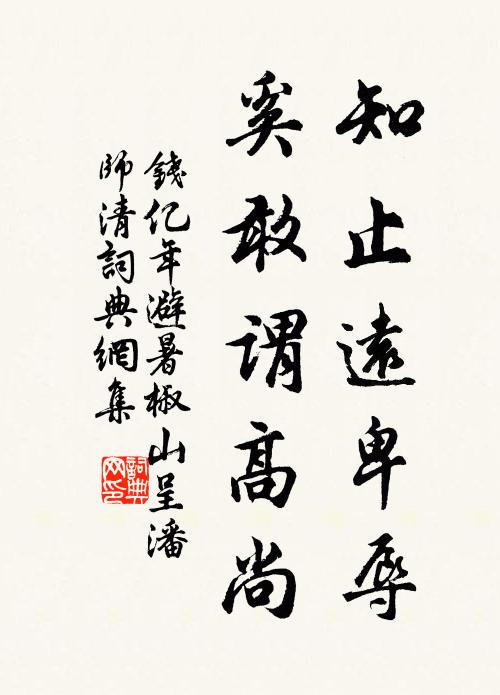 知止遠卑辱
奚敢謂高尚
錢億年避暑椒山呈潘
師清詞典網集
詞典
网印